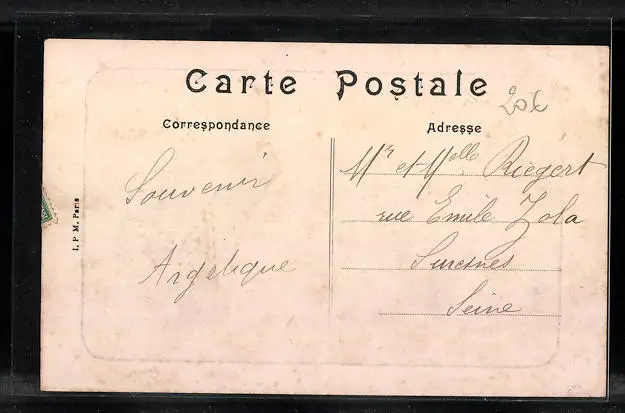 Carte Postale
20€
Correspondance
Adresse
Souvenir
Angelique
Mr et Melle Riegert
rue Emile Zola
Suresnes
Seine
I. P. M. Paris